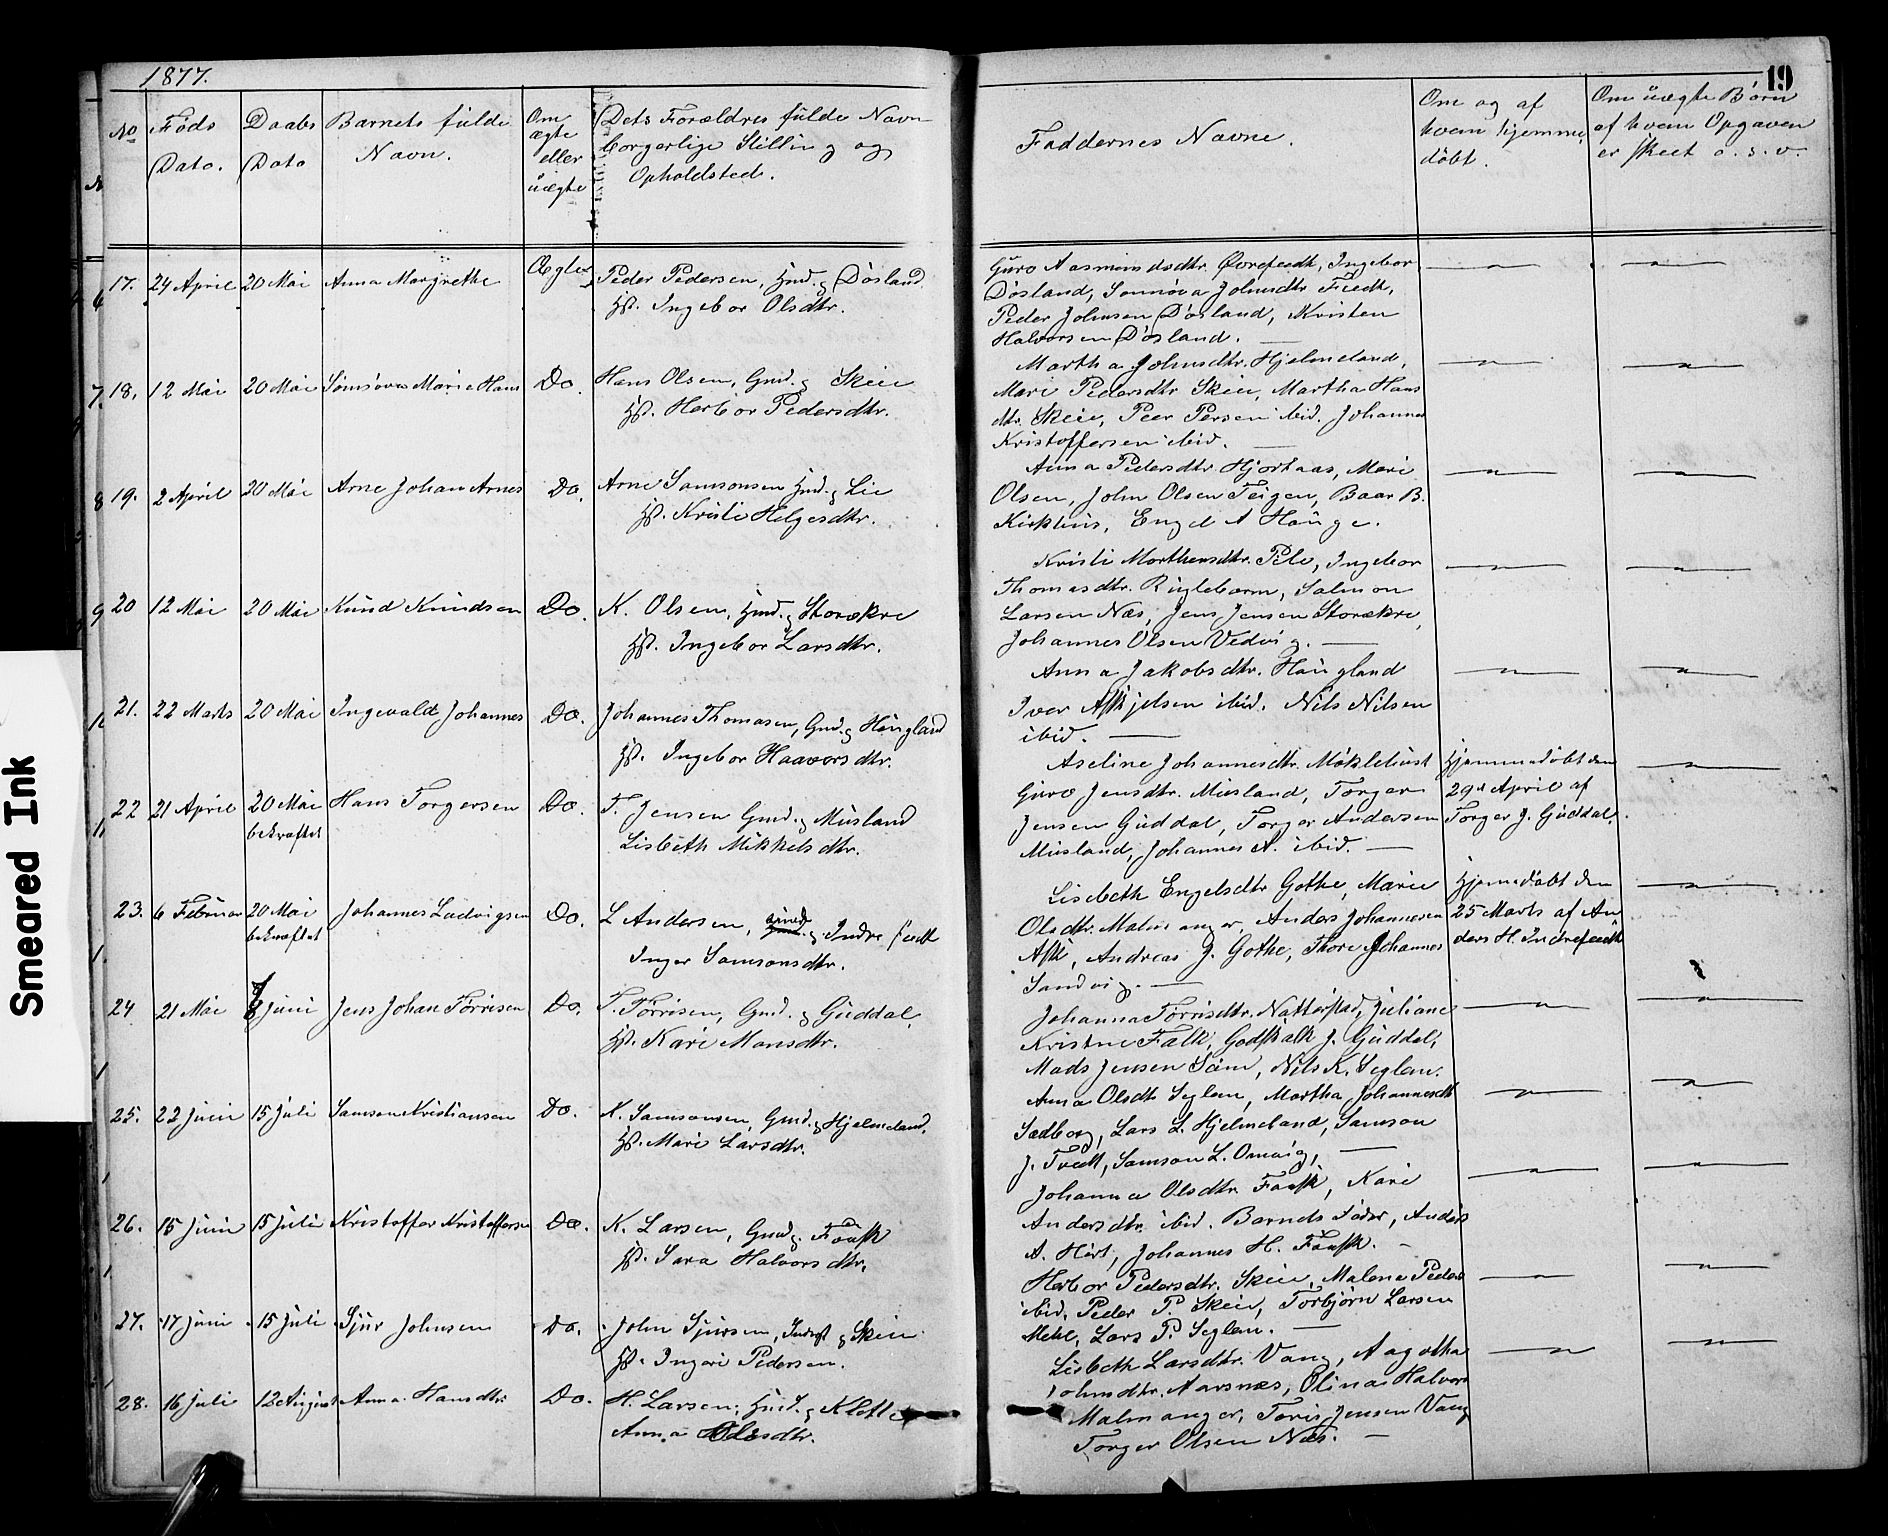 1877.
19
No
Føds Dato.
Daabs Dato
Barnets fulde Navn.
Om ægte eller uægte
Dets Forældres fulde Navn borgerlige Stilling og Opholdsted.
Faddernes Navne.
Om og af hvem hjemmedöbt.
Om uægte Børn af hvem Opgaven er skeet o. s. v.
17. 24 April 20 Mai Anna Margrethe Ægte Peder Pedersen, Gmd. g Døsland
Hst. Ingebor Olsdtr.
Guro Aasmundsdtr. Øvrefeedt, Ingebor
Døsland, Sønnøva Johnsdtr Tvedt,
Peder Johnsen Døsland, Kristen
Halvorsen Døsland.
18. 12 Mai 20 Mai Sønnøva Marie Hans Do. Hans Olsen, Gmd. g Skeie
Hst. Herbor Pedersdtr.
Martha Johnsdtr. Hjelmeland,
Mari Pedersdtr Skeie, Martha Hans
dtr. Skeie, Peer Persen ibid. Johannes
Kristoffersen ibid.
19. 2 April 20 Mai Arne Johan Arnes Do. Arne Samsonsen Gmd. g Lie
Hst. Kristi Helgesdtr.
Anna Pedersdtr. Hjortaas, Mari
Olsen, John Olsen Teigen, Baar B.
Engel A Hauge.
20 12 Mai 20 Mai Knud Knudsen Do. K. Olsen, Gmd. g Storækre
Hst. Ingebor Larsdtr.
Kristi Morthensdtr. Pile, Ingebor
Thomasdtr. Salmon
Larsen Næs, Jens Jensen Storækre,
Johannes Olsen Vedvig.
21. 22 Marts 20 Mai Ingevald Johannes Do. Johannes Thomasen, Gmd. g Haugland
Hst. Ingebor Haavorsdtr.
Anna Jakobsdtr. Haugland
Iver Askjelsen ibid. Nils Nilsen
ibid.
22 21 April 20 Mai bekræftet Hans Torgersen Do. T. Jensen Gmd. g Musland
Lisbeth Mikkelsdtr.
Aseline Johannesdtr. Møklebust
Guro Jensdtr. Musland, Torger
Jensen Guddal, Torger Andersen
Musland, Johannes A. ibid.
Hjemmedøbt den
29de April af
Torger J. Guddal.
23. 6 Februar 20 Mai bekræftet Johannes Ludvigsen Do. L Andersen, g. Indre feedt
Inger Samsonsdtr.
Lisebeth Engelsdtr Gothe, Marie
Olsdtr. Malmanger, Anders Johannesen
Ask, Andreas J. Gothe, Thore Johannes
Sandvig.
Hjemedøbt den
25 Marts af An
ders H. Indrefeedt
24 21 Mai 8 Juni Jens Johan Tørrisen Do. T. Tørrisen, Gmd. g Guddal,
Hst. Kari Monsdtr.
Johanna Tørrisdtr. Natterstad, Juliane
Kristine Falk, Godskalk J. Guddal,
Mads Jensen Sæm, Nils K. Seglem.
25. 22 Juni 15 Juli Samson Kristiansen Do. K. Samsonsen, Gmd. g Hjelmeland.
Hst. Mari Larsdtr.
Anna Olsdtr Seglem, Martha Johannesdtr
Sædberg, Lars L. Hjelmeland, Samson
J. Tvedt, Samson L. Omvig,
26. 15 Juni 15 Juli Kristoffer Kristoffersen Do. K. Larsen, Gmd g. Fausk
Hst. Sara Halvorsdtr.
Johanna Olsdtr Fausk, Kari
Andersdtr. ibid. Barnets Fader, Anders
A. Johannes H. Fausk.
27. 17 Juni 15 Juli Sjur Johnsen Do. John Sjursen, Inderst g Skeie
Hst. Ingeri Pedersen.
Herbor Pedersdtr. Skeie, Malene Peders
ibid, Peder P. Skeie, Torbjørn Larsen
Mehl, Lars P. Seglem.
28. 16 Juli 12 August Anna Hansdtr. Do. H. Larsen, Gmd. g Klette
Anna Olesdtr.
Lisbeth Larsdtr. Vang, Aagotha
Johnsdtr. Aarsnæs, Olina Halvors
Malmanger, Tøris Jensen Vang
Torger Olsen Næs.
Smeared Ink